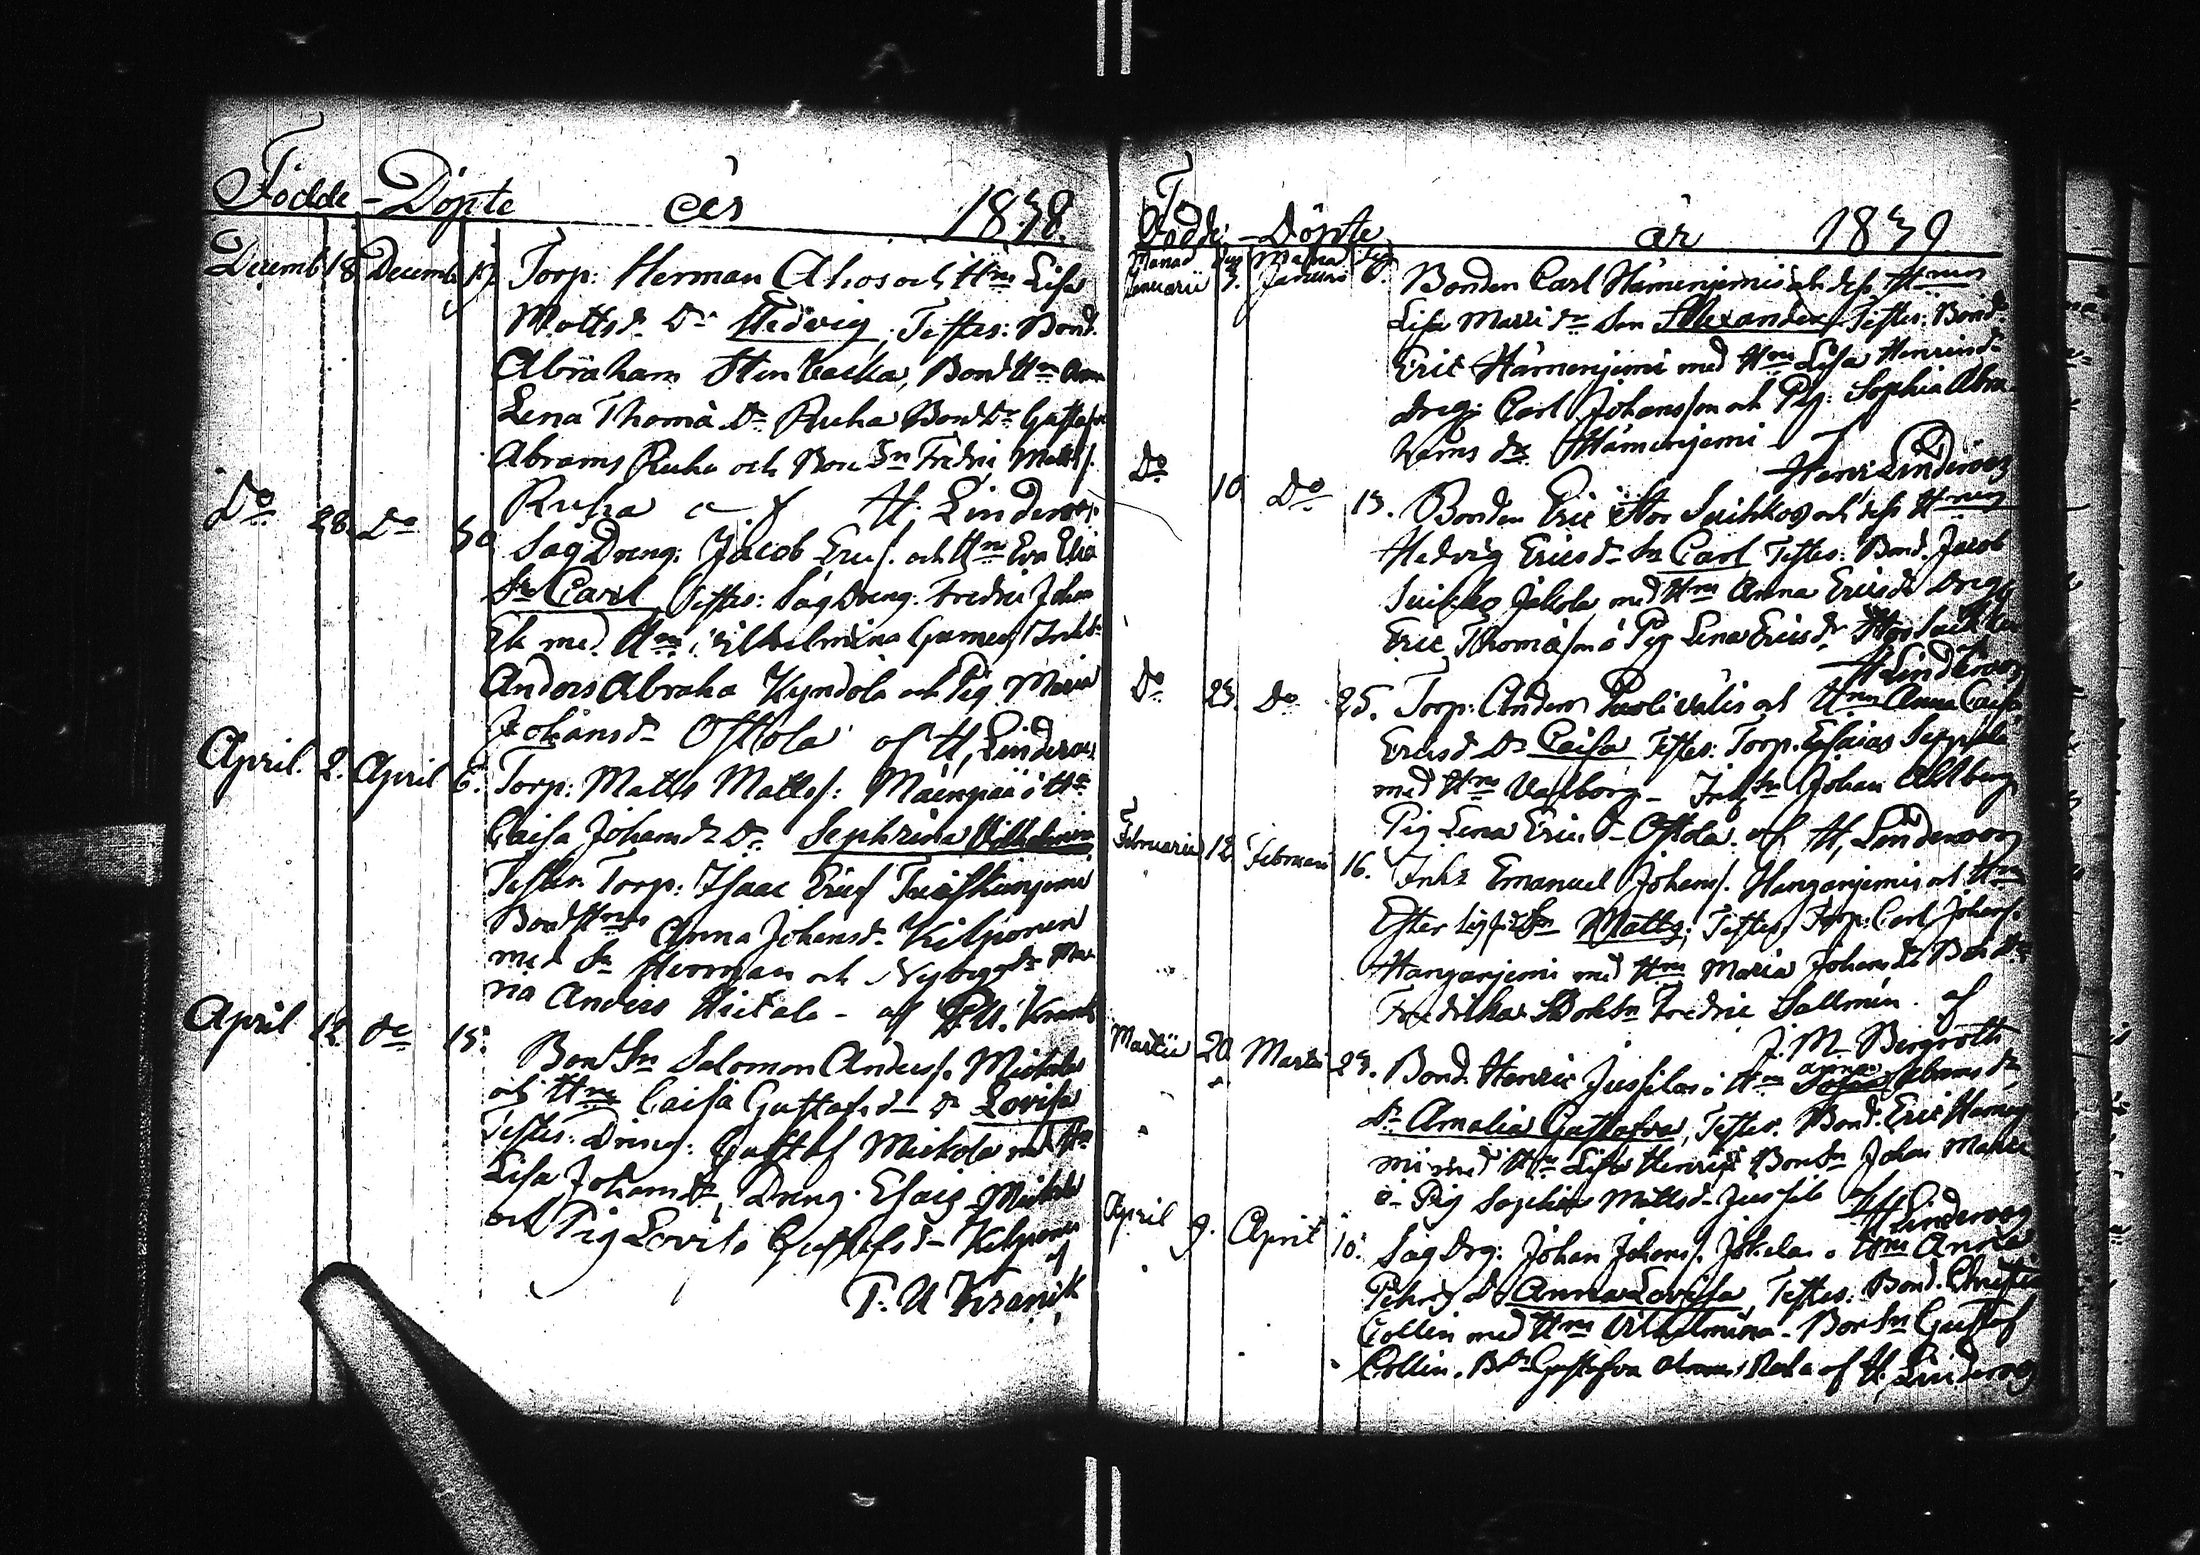 Födde - Döpte år 1838.
Decemb 18. Decemb 19. Torp: Herman Ahos och Hru Lisa
Mattsdr Dr Hedvig, Testes: Bond.
Abraham Stenbacka, Bond Hru
Lena Thomä Dr Ruha Bond Dr
Abrams Ruha och Bon Sn Fredric Matts/.
Ruha af H. Linderoos.
Do 28. Do 30 Såg Dreng: Jacob Erics/. och Hru Eva
Sn Carl Testes: Såg Dreng. Fredric Johan
Ek med Hru Vilhelmina Inhs
Anders Abraha Kyndölä och Pig Maria
Johansdr Ollola af H, Linderoos
April. 2. April 6. Torp: Matts Matts/: o Hru
Caisa Johansdr Dr Sephrina Vilhelmina
Testes. Torp: Isaac Erics/
Bond Hru Anna Johansdr Kilponen
med Sn Herman och Nybygg Dr Ma-
ria Anders Hietala - af P.U. Kranck
April 12. do 15. Bond Sn Salomon Anders/. Mickola
och Hru Caisa Gustafsdr Dr Lovisa
Testes: Dreng: Gustaf Mickola med Hru
Lisa Johansdr, Dreng. Esaias Mickola
och Pig Lovisa Gustafsdr Kilponen
af
P. U Kranck
Födde - Döpte år 1839
Månad Dag Månad Dag
Januarii 3. Januarii 6. Bonden Carl Hämenjemis och dess Hrus
Lisa Mattsdr Son Alexander Testes: Bond.
Eric Hämenjemi med Hru Lisa Henricsdr
Dreg: Carl Johansson och Pig: Sophia Abra-
hams dr Hämenjemi af
Henr Linderoos
Do 10 Do 13. Bonden Eric Stor Suikkos och dess Hrus
Hedvig Ericsdr Sn Carl Testes: Bond. Jacob
Suikko Jakola med Hru Anna Ericsdr Dreg
Eric Thomasson o Pig Lena Ericsdr Stor Suikko
H Linderoos
Do 23. Do 25. Torp: Anders Puolivälis och Hru Anna Caisa
Ericsdr Dr Caisa Testes: Torp. Esaias Seppälä
med Hru Valborg - Inhs Sn Johan Ahlberg
Pig Lena Ericsdr Ollola. af H, Linderoos
Februarii 12. Februarii 16. Inhs Emanuel Johans/. Hanganjemis och Hru
Ester Sn Matts, Testes, Torp: Carl Johans/.
Hanganjemi med Hru Maria Johansdr Bon Dr
Fredrika Bok Sn Fredric Sallmén. af
J. M. Bergroth
Martii 20. Martii 23. Bond. Henric Jussilas o Hru Anna Abramsdr
Dr Amalia Gustafva, Testes. Bond. Eric Hämenje-
mi med Hru Lisa Henrics Bon Sn Johan Matts
o Pig Sophia Mattsdr Jussila af
H Linderoos
April 9. April 10. Såg Drg: Johan Johans/. Jokelas o Hru Anna
Pehrs dr Dr Anna Lovisa, Testes: Bond. Christian
Collin med Hru Vilhelmina - Bon Sn Gustaf
Collin. B Dr Gustafva Abrams Ruha af H. Linderoos